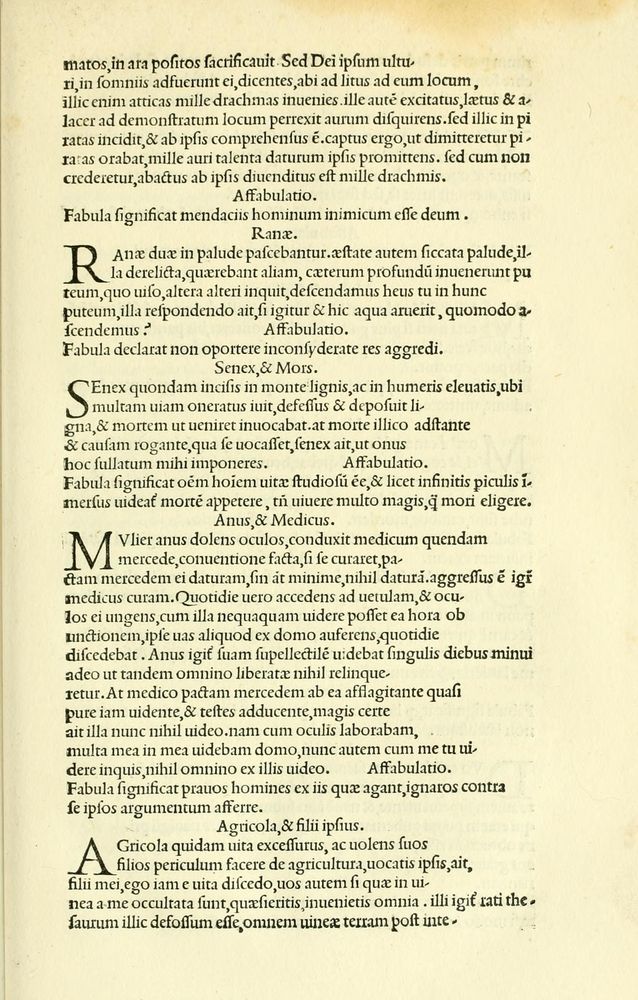 matos,in ara positos sacrificauit. Sed Dei ipsum ultu-
ri,in somniis adfuerunt ei,dicentes,abi ad litus ad eum locum,
illic enim atticas mille drachmas inuenies.ille autē excitatus,lætus & a-
lacer ad demonstratum locum perrexit aurum disquirens.sed illic in pi
ratas incidit,& ab ipsis comprehensus ē.captus ergo,ut dimitteretur pi-
ratas orabat,mille auri talenta daturum ipsis promittens. sed cum non
crederetur,abactus ab ipsis diuenditus est mille drachmis.
Affabulatio.
Fabula significat mendaciis hominum inimicum esse deum.
Ranæ.
RAnæ duæ in palude pascebantur.æstate autem siccata palude,il-
la derelicta,quærebant aliam, cæterum profundū inuenerunt pu
teum,quo uiso,altera alteri inquit,descendamus heus tu in hunc
puteum,illa respondendo ait,si igitur & hic aqua aruerit, quomodo a-
scendemus? Affabulatio.
Fabula declarat non oportere inconsyderate res aggredi.
Senex,& Mors.
SEnex quondam incisis in monte lignis,ac in humeris eleuatis,ubi
multam uiam oneratus iuit,defessus & deposuit li-
gna,& mortem ut ueniret inuocabat.at morte illico adstante
& causam rogante,qua se uocasset,senex ait,ut onus
hoc sullatum mihi imponeres. Affabulatio.
Fabula significat oēm hoīem uitæ studiosū ēe,& licet infinitis piculis ī-
mersus uideat᷑ mortē appetere, tn̄ uiuere multo magis,q̄ mori eligere.
Anus,& Medicus.
MVlier anus dolens oculos,conduxit medicum quendam
mercede,conuentione facta,si se curaret,pa-
ctam mercedem ei daturam,sin āt minime,nihil daturā.aggressus ē igr̄
medicus curam.Quotidie uero accedens ad uetulam,& ocu-
los ei ungens,cum illa nequaquam uidere posset ea hora ob
unctionem,ipse uas aliquod ex domo auferens,quotidie
discedebat. Anus igit᷑ suam supellectilē uidebat singulis diebus minui
adeo ut tandem omnino liberatæ nihil relinque-
retur.At medico pactam mercedem ab ea afflagitante quasi
pure iam uidente,& testes adducente,magis certe
ait illa nunc nihil uideo.nam cum oculis laborabam,
multa mea in mea uidebam domo,nunc autem cum me tu ui-
dere inquis,nihil omnino ex illis uideo. Affabulatio.
Fabula significat prauos homines ex iis quæ agant,ignaros contra
se ipsos argumentum afferre.
Agricola,& filii ipsius.
AGricola quidam uita excessurus, ac uolens suos
filios periculum facere de agricultura,uocatis ipsis,ait,
filii mei,ego iam e uita discedo,uos autem si quæ in ui-
nea a me occultata sunt,quæsieritis,inuenietis omnia. illi igit᷑ rati the-
saurum illic defossum esse,omnem uineæ terram post inte-